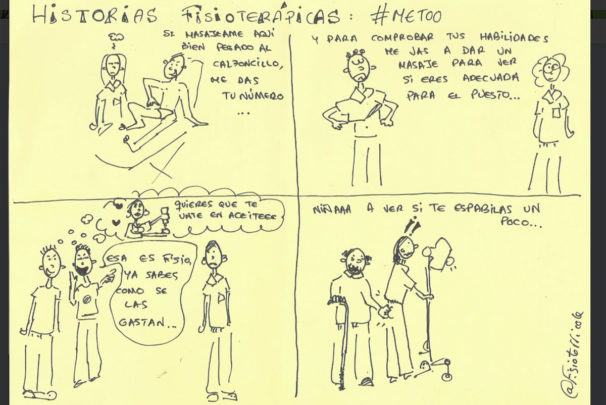 HISTORIAS FISIOTERÁPICAS: #METOO
SI MASAJEAME AQUÍ
BIEN PEGADO AL
CALZONCILLO,
ME DAS
TU NÚMERO
...
Y PARA COMPROBAR TUS HABILIDADES
ME VAS A DAR UN
MASAJE PARA VER
SI ERES ADECUADA
PARA EL PUESTO...
QUIERES QUE TE
UNTE EN ACEITEEE
ESA ES FISIO,
YA SABES
COMO SE
LAS
GASTAN...
NIÑAAA A VER SI TE ESPABILAS UN
POCO...
!!